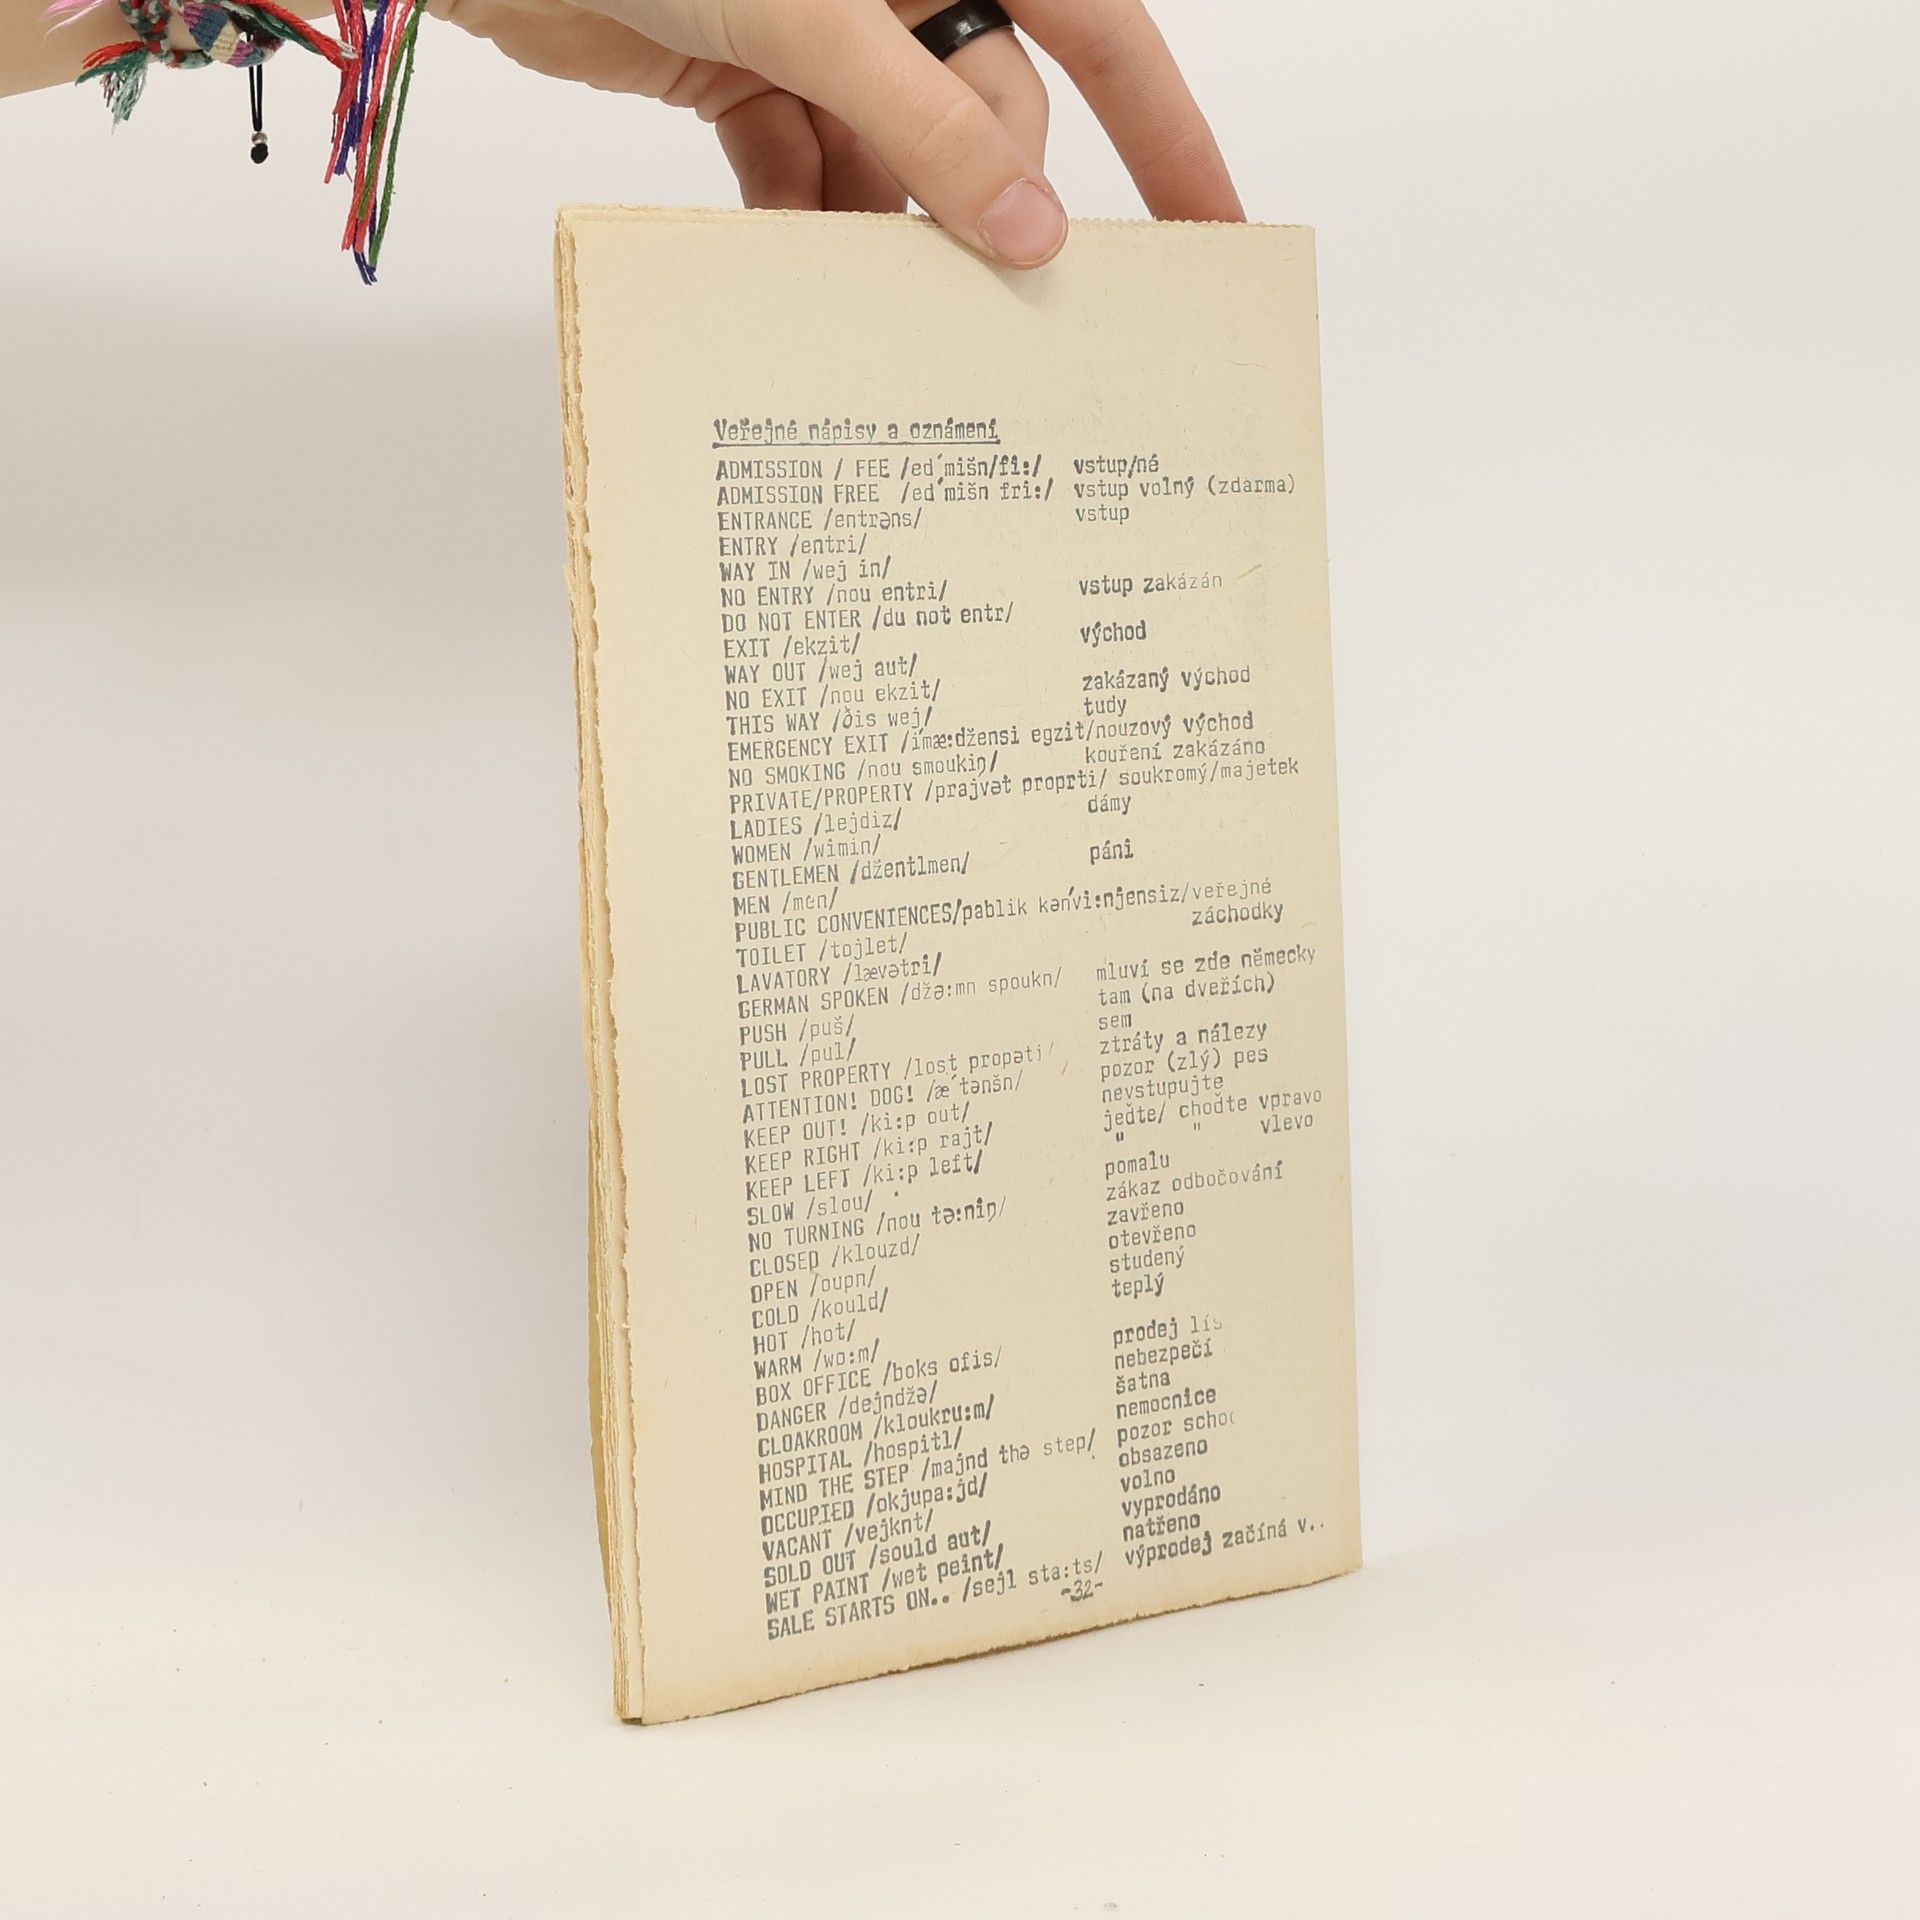 Veřejné nápisy a oznámení
ADMISSION / FEE /ed´mišn/fi:/ vstup/né
ADMISSION FREE /ed´mišn fri:/ vstup volný (zdarma)
ENTRANCE /entrəns/ vstup
ENTRY /entri/
WAY IN /wej in/
NO ENTRY /nou entri/ vstup zakázán
DO NOT ENTER /du not entr/
EXIT /ekzit/ východ
WAY OUT /wej aut/
NO EXIT /nou ekzit/ zakázaný východ
THIS WAY /ðis wej/ tudy
EMERGENCY EXIT /i´mæ:džensi egzit/nouzový východ
NO SMOKING /nou smoukiŋ/ kouření zakázáno
PRIVATE/PROPERTY /prajvət proprti/ soukromý/majetek
LADIES /lejdiz/ dámy
WOMEN /wimin/
GENTLEMEN /džentlmen/ páni
MEN /men/
PUBLIC CONVENIENCES/pablik kən´vi:njensiz/veřejné
záchodky
TOILET /tojlet/
LAVATORY /lævətri/
GERMAN SPOKEN /džə:mn spoukn/ mluví se zde německy
PUSH /puš/ tam (na dveřích)
PULL /pul/ sem
LOST PROPERTY /lost propəti/ ztráty a nálezy
ATTENTION! DOG! /æ´tənšn/ pozor (zlý) pes
KEEP OUT! /ki:p out/ nevstupujte
KEEP RIGHT /ki:p rajt/ jeďte/ choďte vpravo
KEEP LEFT /ki:p left/ " " vlevo
SLOW /slou/ pomalu
NO TURNING /nou tə:niŋ/ zákaz odbočování
CLOSED /klouzd/ zavřeno
OPEN /oupn/ otevřeno
COLD /kould/ studený
HOT /hot/ teplý
WARM /wo:m/
BOX OFFICE /boks ofis/ prodej lís
DANGER /dejndžə/ nebezpečí
CLOAKROOM /kloukru:m/ šatna
HOSPITAL /hospitl/ nemocnice
MIND THE STEP /majnd thə step/ pozor scho
OCCUPIED /okjupa:jd/ obsazeno
VACANT /vejknt/ volno
SOLD OUT /sould aut/ vyprodáno
WET PAINT /wet peint/ natřeno
SALE STARTS ON.. /sejl sta:ts/ výprodej začíná v..
-32-